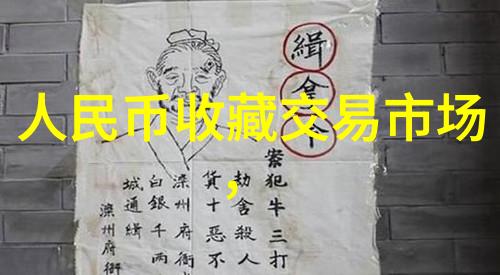 人民币收藏交易市场
,
緝拿令
案犯牛三打
劫舍殺人
貨十惡不
滦州府衙
白銀千兩
城通緝
滦州府衙